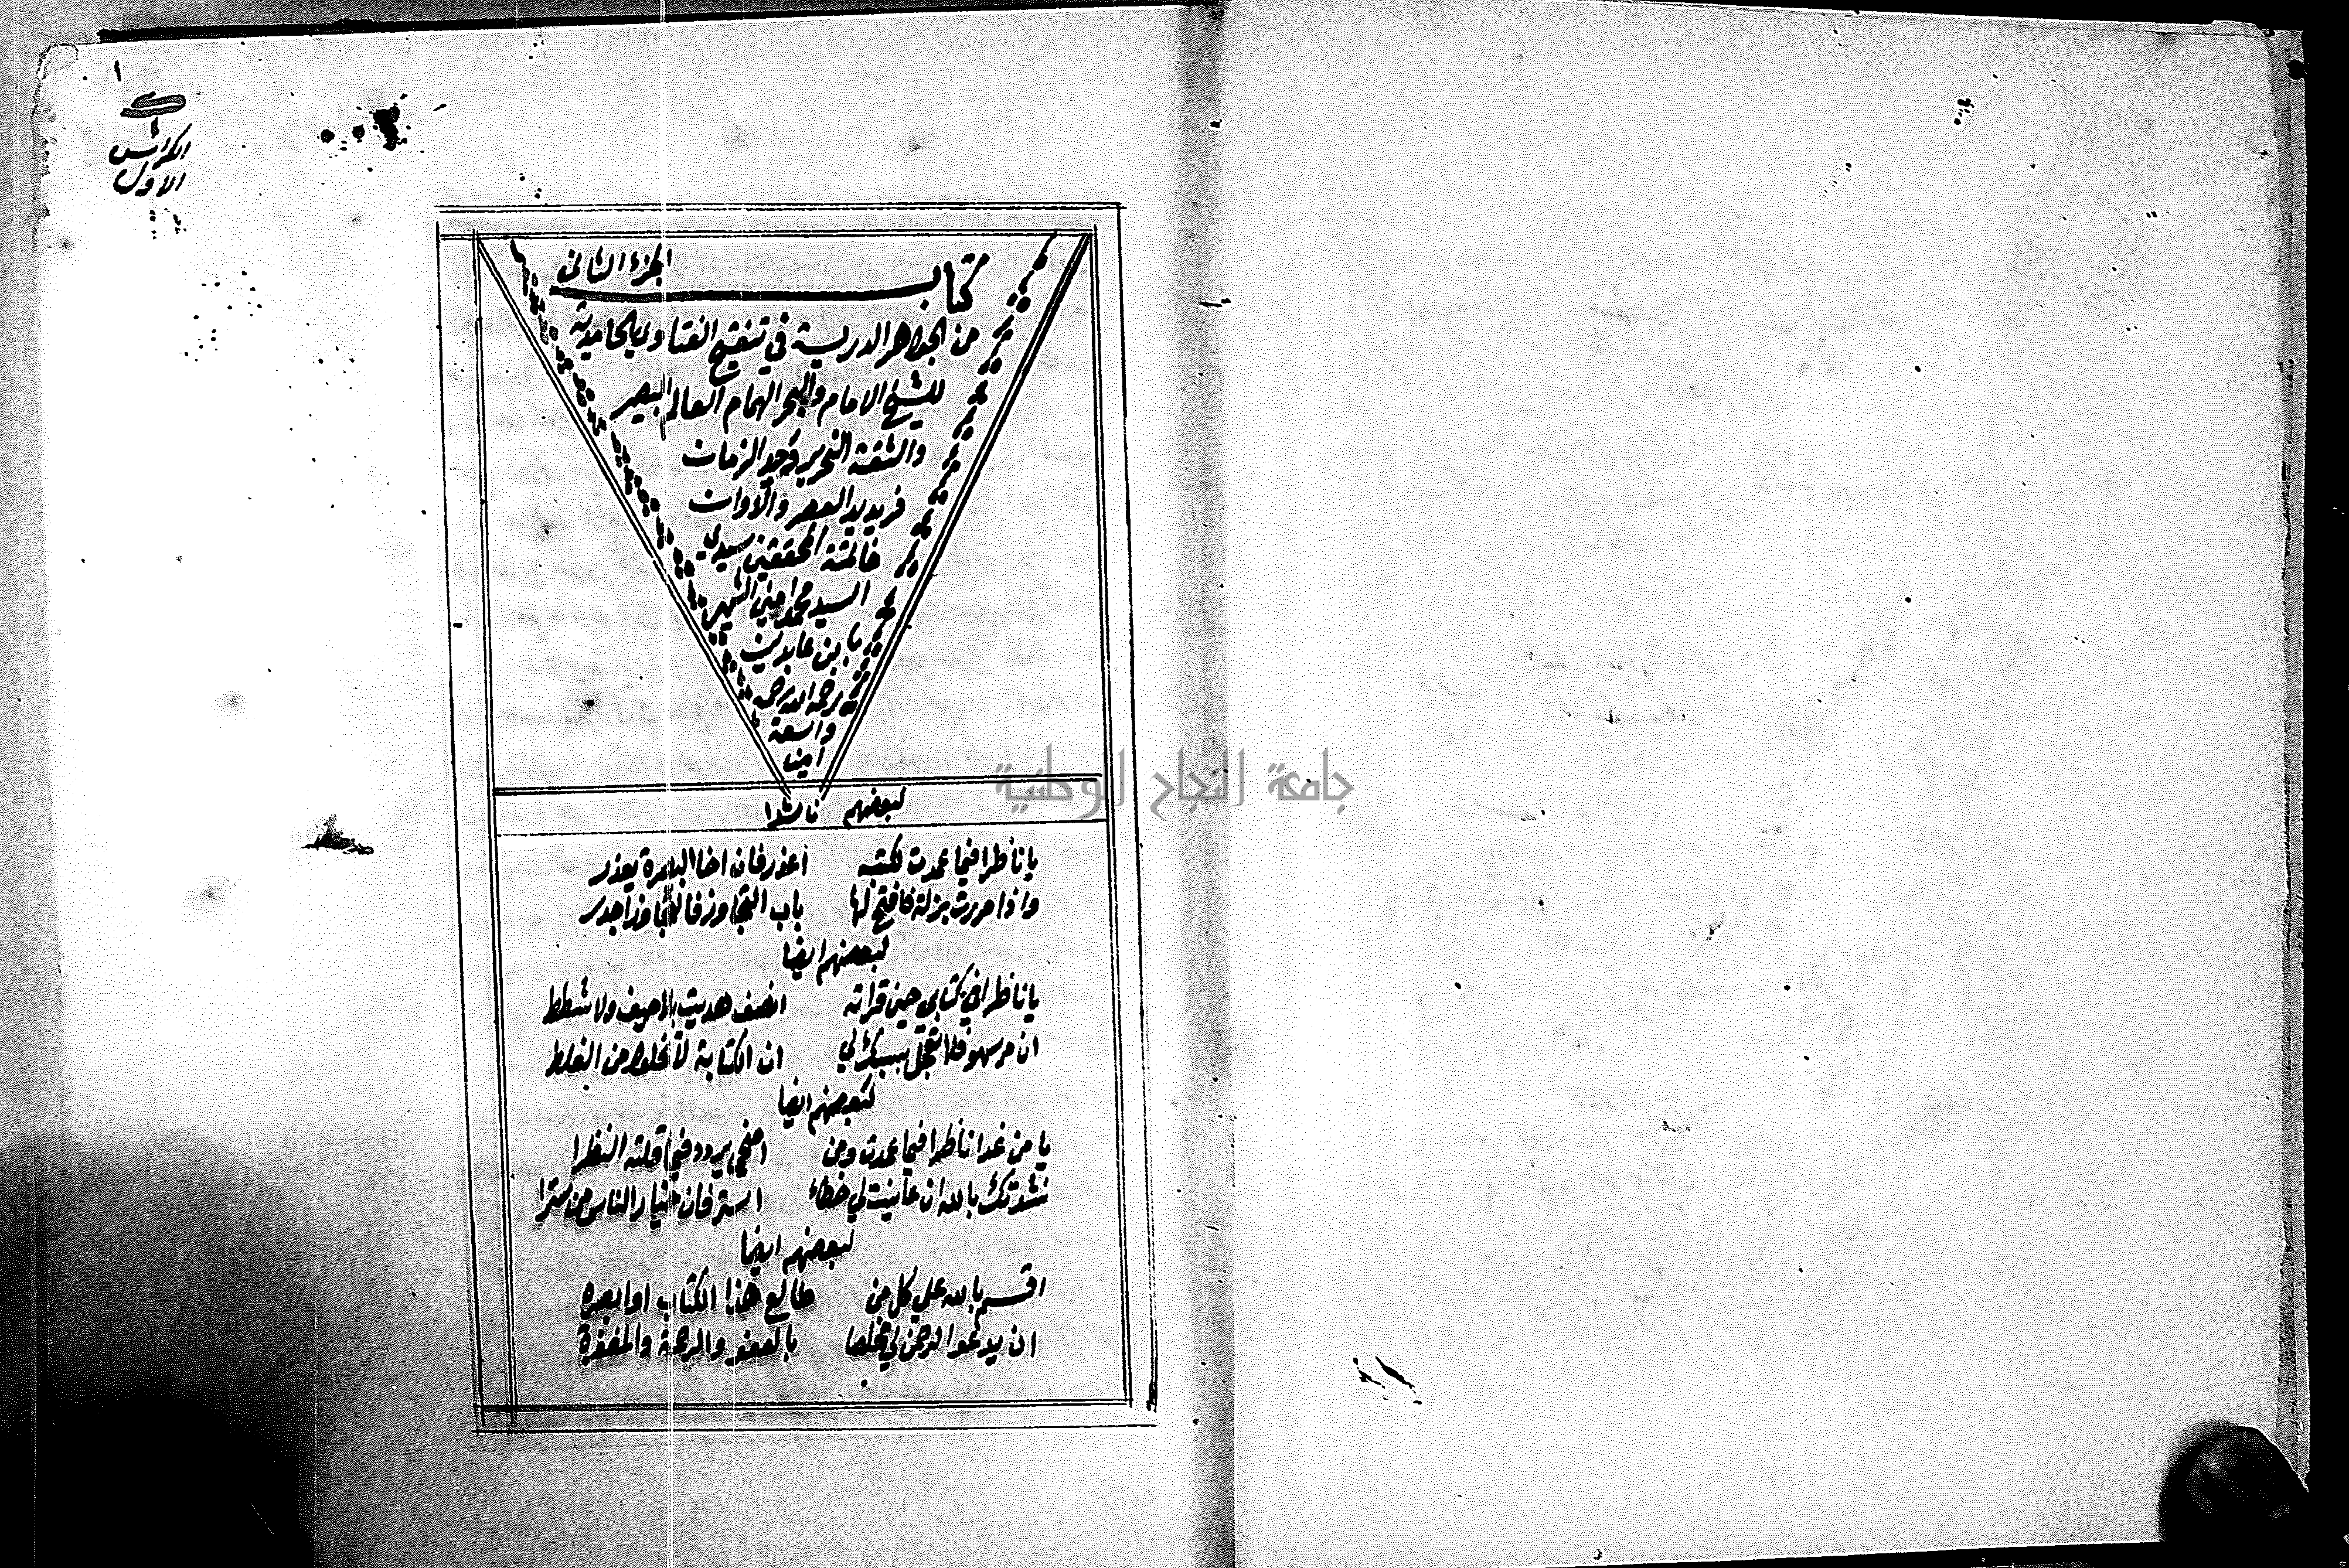 ١
ك
١
الكراس
الاول
كتاب الجزء الثاني
من الجواهر الدرية في تنقيح الفتاوى الحامدية
للشيخ الامام والبحر الهمام العالم البصير
والثقة النحرير وحيد الزمان
فريد العصر والاوان
خاتمة المحققين سيدي
السيد محمد امين الشهير
بابن عابدين
رحمه الله رحمة
واسعة
امين
لبعضهم ناشدا
يا ناظرا فيما عمدت لكتبه اعذر فان اخا البصيرة يعذر
واذا مررت بزلة فافتح لها باب التجاوز فالتجاوز اجدر
لبعضهم ايضا
يا ناظرا في كتابي حين قراته انصف هديت بلا حيف ولا شطط
ان مر سهو فلا تعجل بسبك لي ان الكتابة لا تخلو من الغلط
لبعضهم ايضا
يا من غدا ناظرا فيما عمدت ومن اضحى يردد فيما قلته النظرا
نشدتك بالله ان عاينت لي خطاء استر فان خيار الناس من سترا
لبعضهم ايضا
اقسم بالله على كل من طالع هذا الكتاب او ابصره
ان يدعو الرحمن لي مخلصا بالعفو والرحمة والمغفرة
جامعة النجاح الوطنية